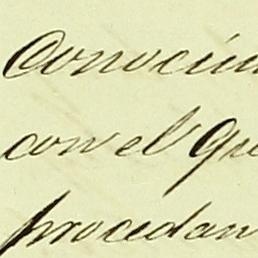 Conocim
con el Que
procedan